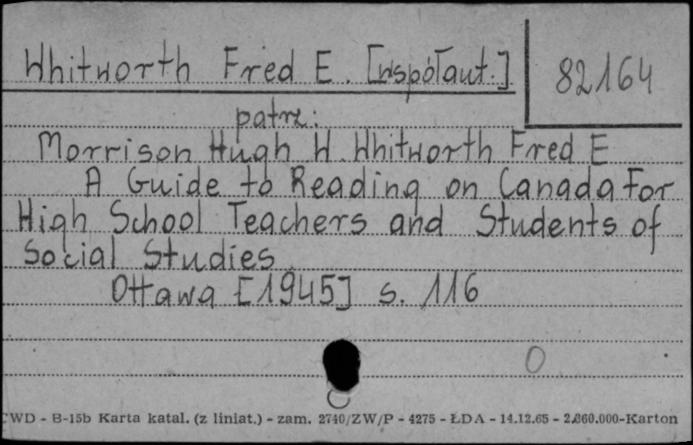 Whitworth Fred E. [współaut.] 82164
patrz:
Morrison Hugh W. Whitworth Fred E
A Guide to Reading on Canada For
High School Teachers and Students of
Social Studies
Ottawa [1945] s. 116
0
CWD - B-15b Karta katal. (z liniat.) - zam. 2740/ZW/P - 4275 - ŁDA - 14.12.65 - 2.860.000-Karton